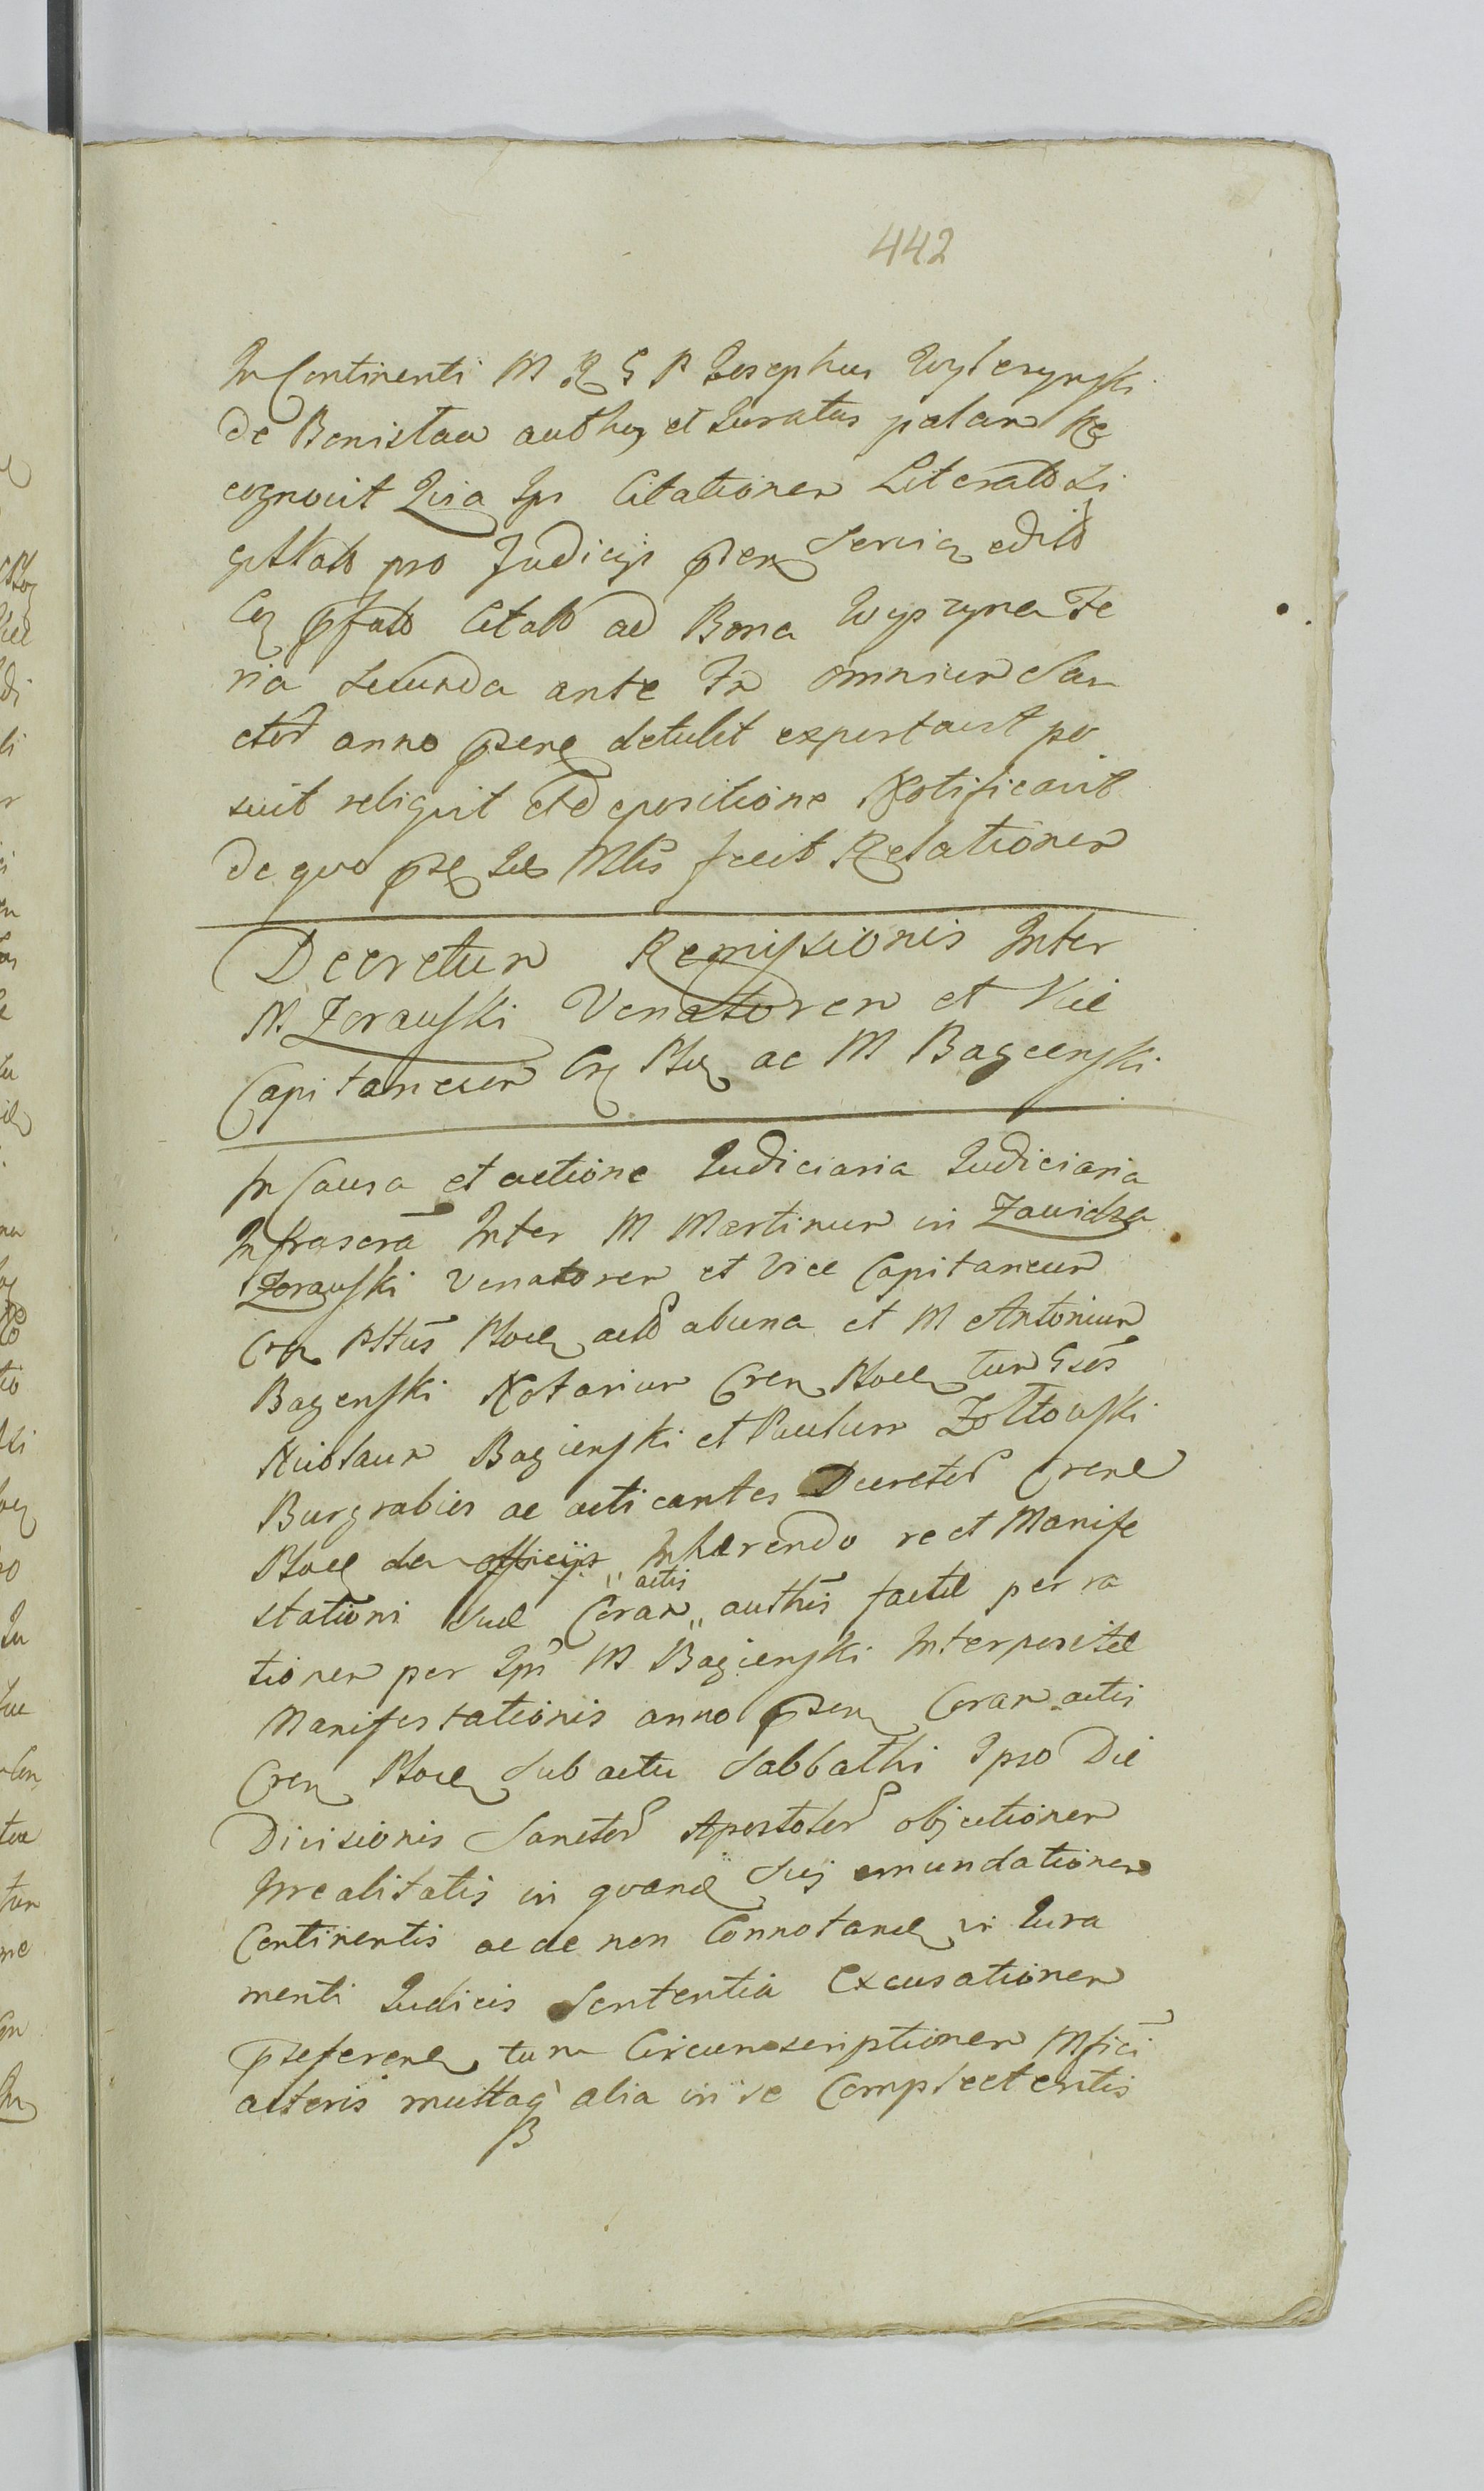 442
In Continenti M R G P Josephus
de Bonislaw auth et Juratus palam Re
cognovit Quia Ips Citationem Literato Si
gillato pro Judicijs psen Servic edito
Coq pfato Citato ad Bona Wyszyna Fe
ria Secunda ante Fm omnium San
ctor anno psene detulit exportavit po
suit reliquit et de positione Notificavit
de quo pse Su Mlis fecit Relationem
Decretum Remissionis Inter
M Zorawski Venatorem et Vice
Capitaneum Cre Ploc ac M Bagienski
In Causa et actione Judiciaria Judiciaria
Infrascra Inter M Martinum in Zawidza
Zorawski Venatorem et Vice Capitaneum
Cre Ploce acto ab una et M Antonium
Bagenski Notarium Cren Ploce tum Gsos
Nicolaum Bagienski et Paulum Zoltowski
Burgrabios ac acticantes Decretor Crene
Ploce de officijs Inhærendo re et Manife
stationi Suæ Coram actis authis factæ per ra
tionem per Ips M Bagienski Interpositæ
Manifestationis anno psen Coram actis
Cren Ploce Sub actu Sabbathi Ipso Die
Divisionis Sanctor Apostolor objectionem
Irrealitatis in quand Suj emundationem
Continentis ac de non Connotand in Jura
menti Judicis Sententia Excusationem
pseferen tum Circumscriptionem Mfici
alteris multaq alia in se Complectentis